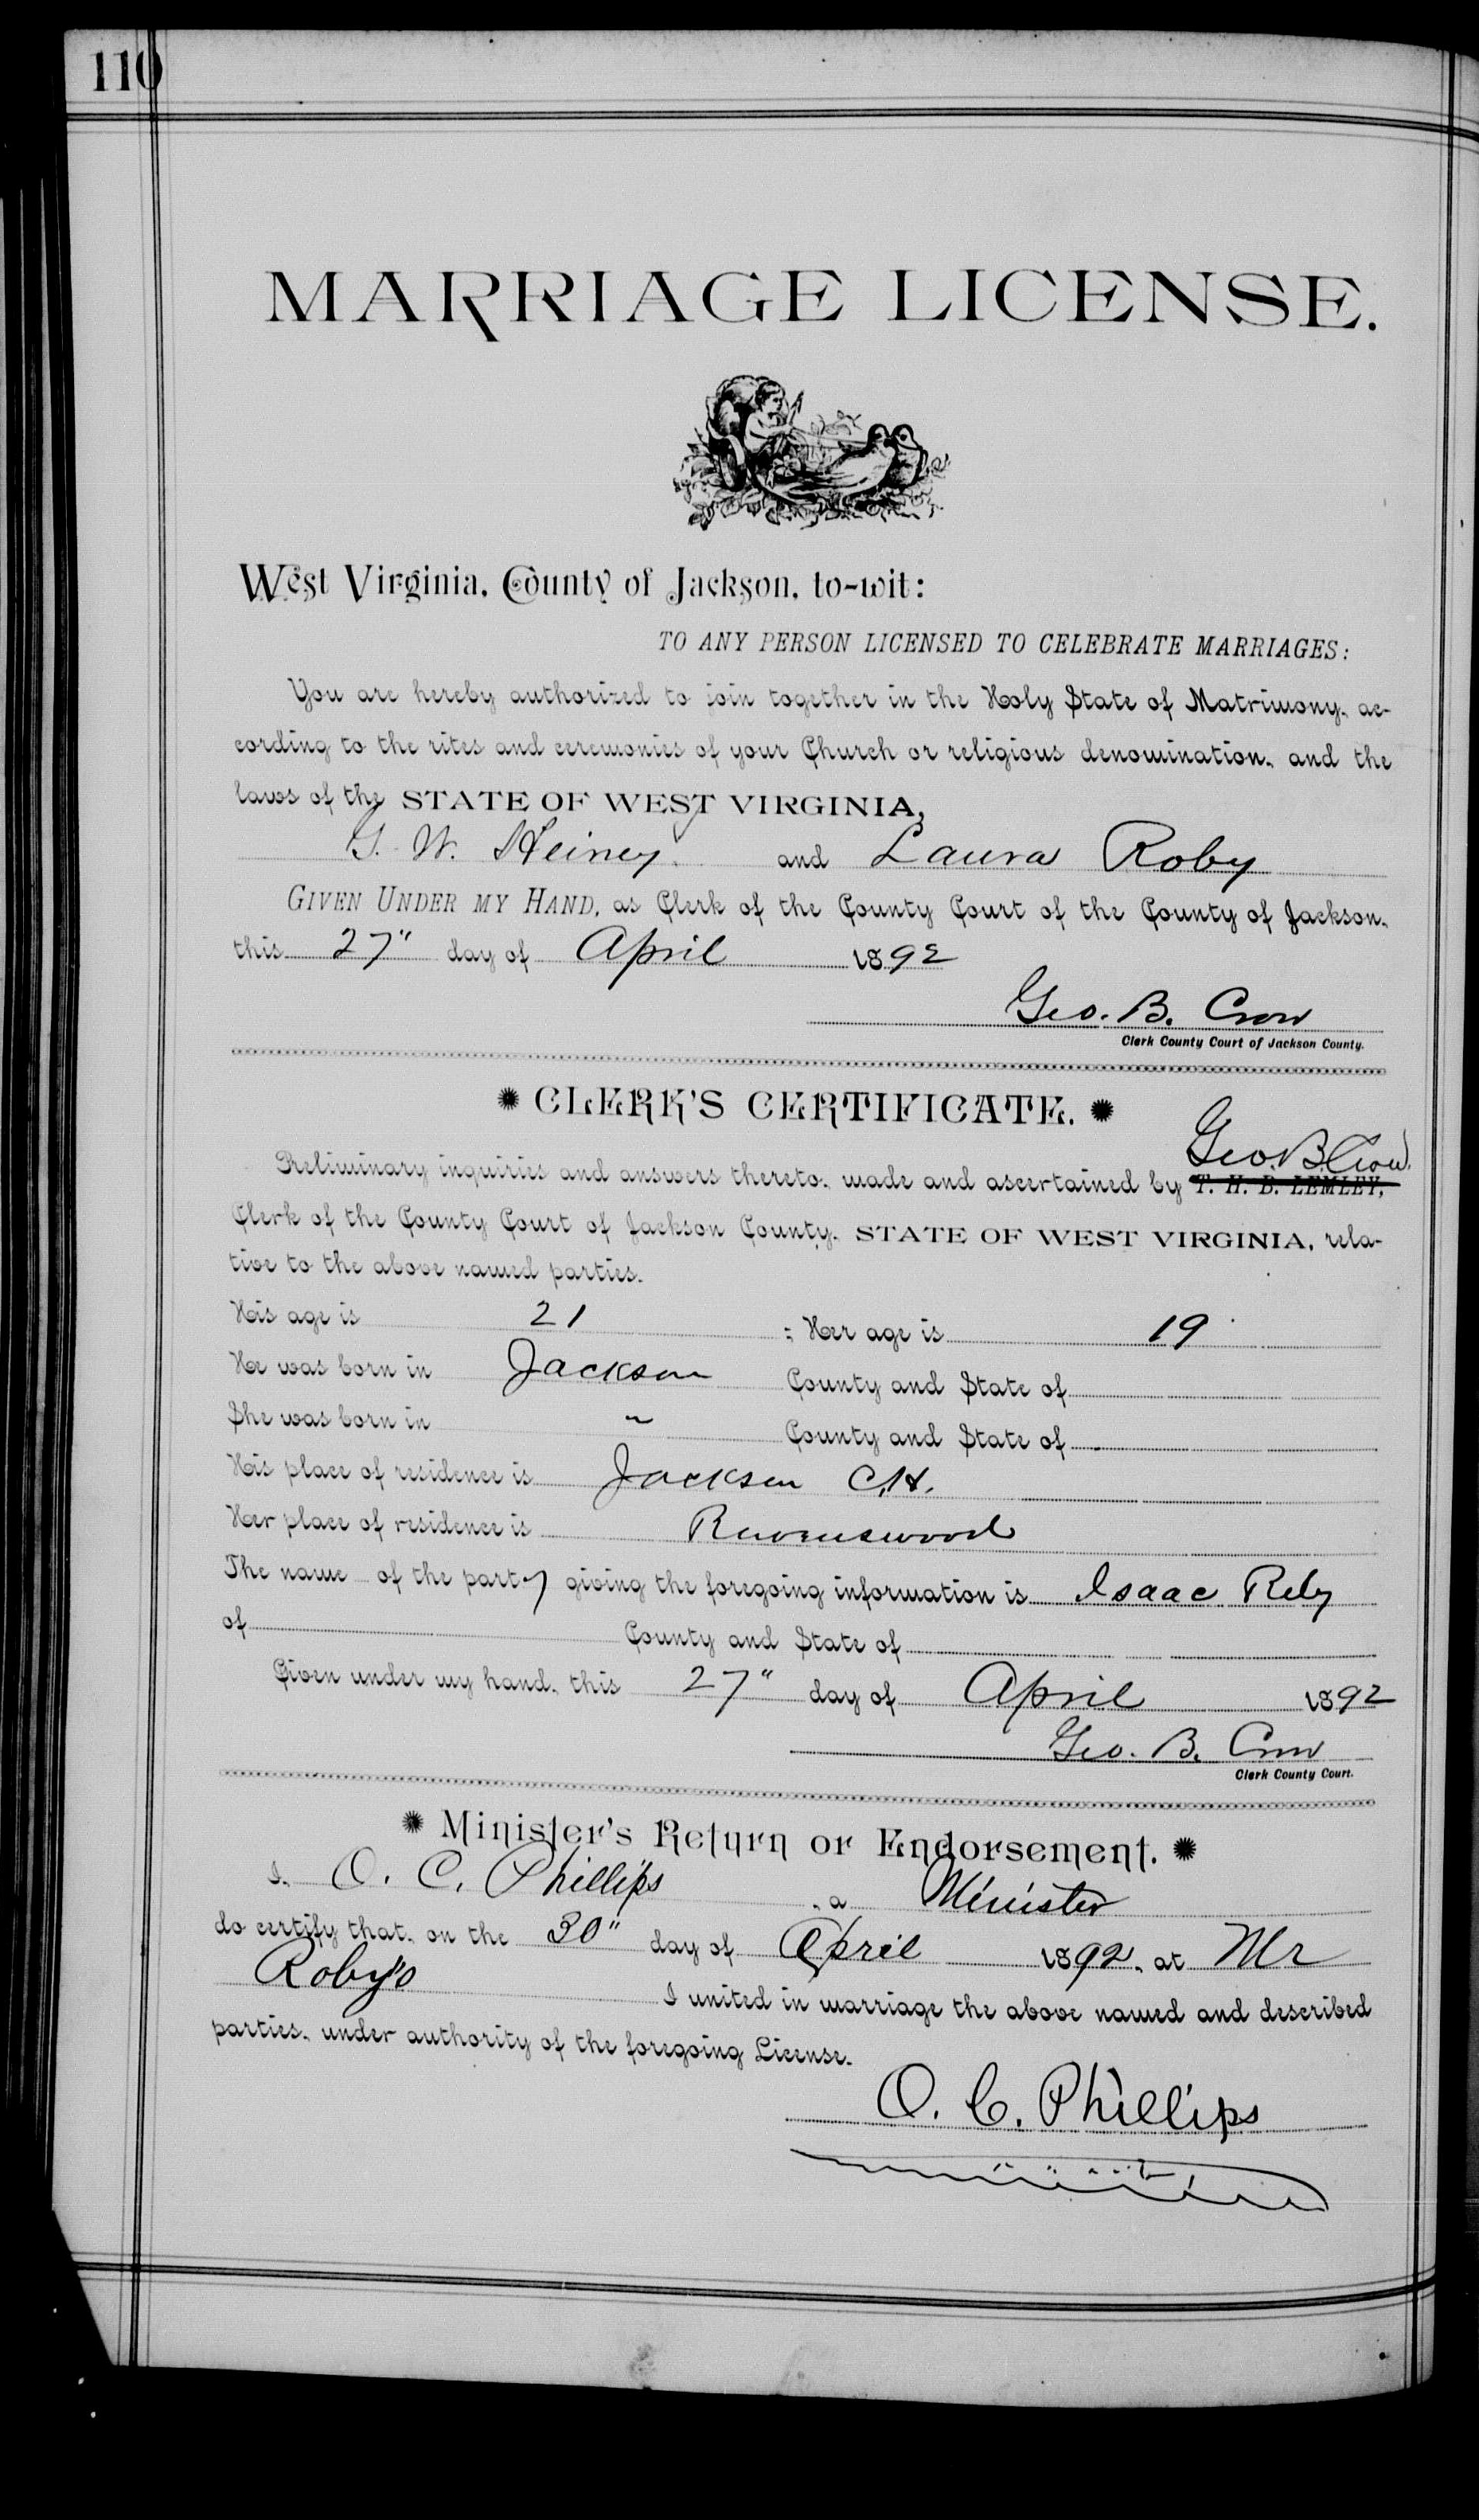 110
MARRIAGE LICENSE.
West Virginia, County of Jackson, to-wit:
TO ANY PERSON LICENSED TO CELEBRATE MARRIAGES:
You are hereby authorized to join together in the Holy State of Matrimony, ac-
cording to the rites and ceremonies of your Church or religious denomination, and the
laws of the STATE OF WEST VIRGINIA,
G. W. Heiney. and Laura Roby
GIVEN UNDER MY HAND, as Clerk of the County Court of the County of Jackson,
this 27" day of April 1892
Geo. B. Crow
Clerk County Court of Jackson County.
CLERK'S CERTIFICATE.
Geo. B. Crow.
Preliminary inquiries and answers thereto, made and ascertained by T. H. B. LEMLEY,
Clerk of the County Court of Jackson County, STATE OF WEST VIRGINIA, rela-
tive to the above named parties.
His age is 21 ; Her age is 19
He was born in Jackson County and State of
She was born in " County and State of
His place of residence is Jackson C.H.
Her place of residence is Ravenswood
The name of the party giving the foregoing information is Isaac Roby
of County and State of
Given under my hand, this 27" day of April 1892
Geo. B. Crow
Clerk County Court.
Minister's Return or Endorsement.
I, O. C. Phillips, a Minister
do certify that, on the 30" day of April 1892, at Mr
Roby's I united in marriage the above named and described
parties, under authority of the foregoing License.
O. C. Phillips